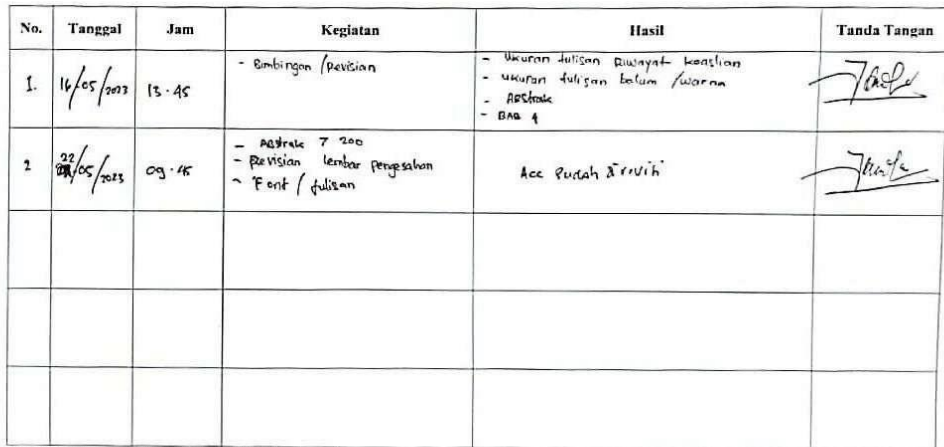 No. Tanggal Jam Kegiatan Hasil Tanda Tangan
1. 16/05/2023 13.45
- Bimbingan / Revisian
- Ukuran tulisan Riwayat keaslian
- Ukuran tulisan belum /warna
- Abstrak
- BAB 4
2 22/05/2023 09.45
- Abstrak 7 200
- Revisian lembar pengesahan
- Font / tulisan
Acc Sudah